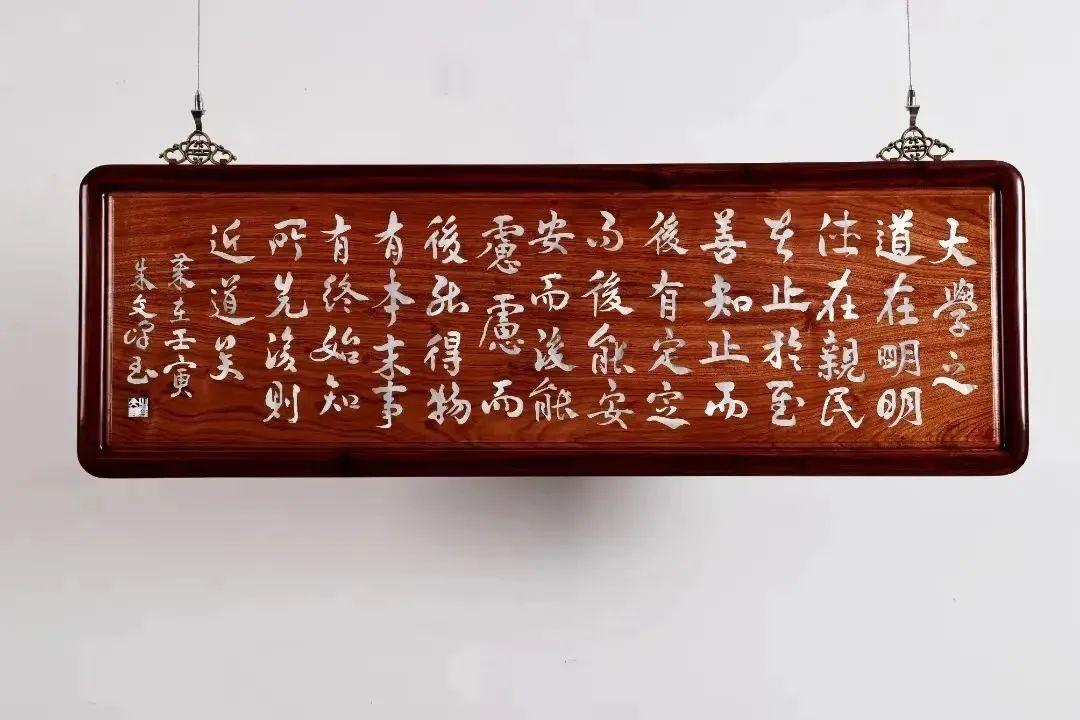 大學之
道在明明
德在親民
在止於至
善知止而
後有定定
而後能安
安而後能
慮慮而
後能得物
有本末事
有終始知
所先後則
近道矣
歲在壬寅
朱文